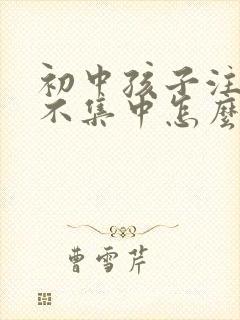 初中孩子注
不集中怎麼
曹雪芹